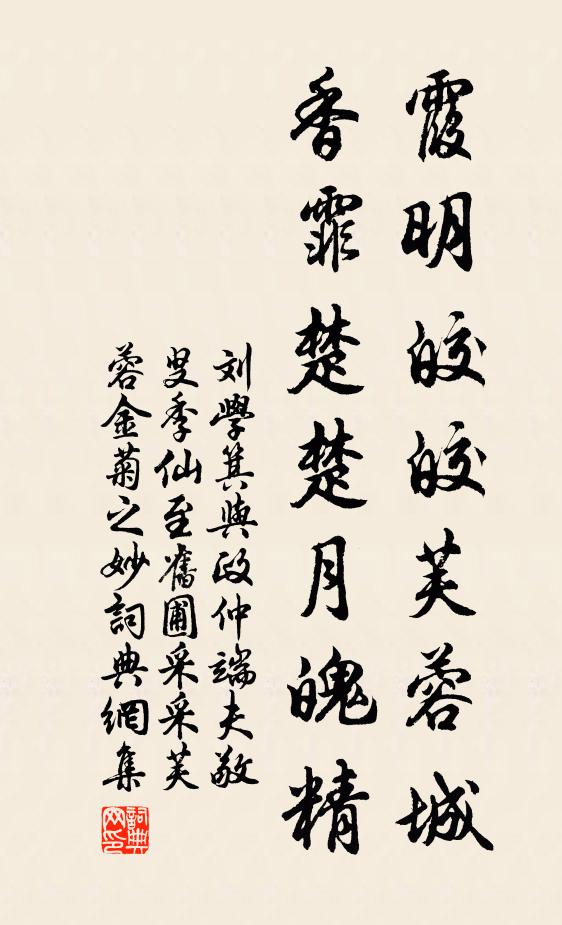 霞明皎皎芙蓉城
香霏楚楚月魄精
刘學箕與政仲端夫敬
叟季仙至舊圃采采芙
蓉金菊之妙詞典網集
詞典网印